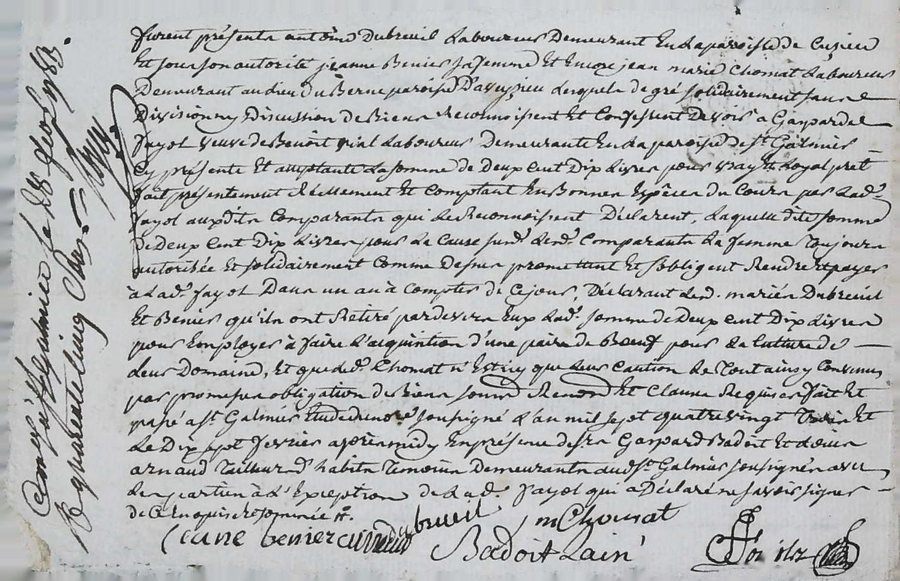 furent présents antoine Dubreuil Laboureur Demeurant En La paroisse de Cuzieu
Et sous son autorité jeanne Benier sa femme Et Encore jean marie Chomat Laboureur
Demeurant au lieu du Berne paroisse D'aveyzieu Lesquels de gré solidairement sans
Division ny Discussion de Biens Reconnoissent Et Confessent Devoir à Gasparde
fayot veuve de Benoit vial Laboureur Demeurante En La paroisse de st. Galmier
Cy présente Et acceptante La somme de Deux Cent Dix Livres pour vray Et Loyal pret
fait présentement Réellement Et Comptant En Bonnes Espèces du Cours par Lad.
fayot auxdits Comparants qui Le Reconnoissent Déclarent, Laquelle dite somme
de Deux Cent Dix Livres pour La Cause susd. Lesd. Comparants La femme toujours
autorisée Et solidairement Comme Dessus promettent Et s'obligent Rendre et payer
à Lad. fayot Dans un an à Compter de Ce jour, Déclarant Lesd. mariés Dubreuil
Et Benier qu'ils ont Retiré pardevers Eux Lad. somme de Deux Cent Dix Livres
pour Employer à faire L'acquisition d'une paire de Bœufs pour La Culture de
Leur Domaine, Et que led. Chomat n'Est icy que Leur Caution Le Tout ainsy Convenu
par promesses obligation de Biens soum. Renond. Et Clauses Requises fait Et
passé à st. Galmier Etude du no.re soussigné L'an mil sept quatre vingt Trois Et
Le Dix sept fevrier après midy En présence de sr. Gaspard Badoit Et Louis
arnaud Tailleur d'habits Temoins Demeurants aud. st. Galmier soussignés avec
Les parties à L'Exception de Lad. fayot qui a Déclaré ne savoir signer
de Ce Enquise Et sommée
jeanne benier dubreuil
jm Chomat
Badoit Lainé
Controllé à st Galmier le dix sept fev. 1783.
R. quarante cinq sous